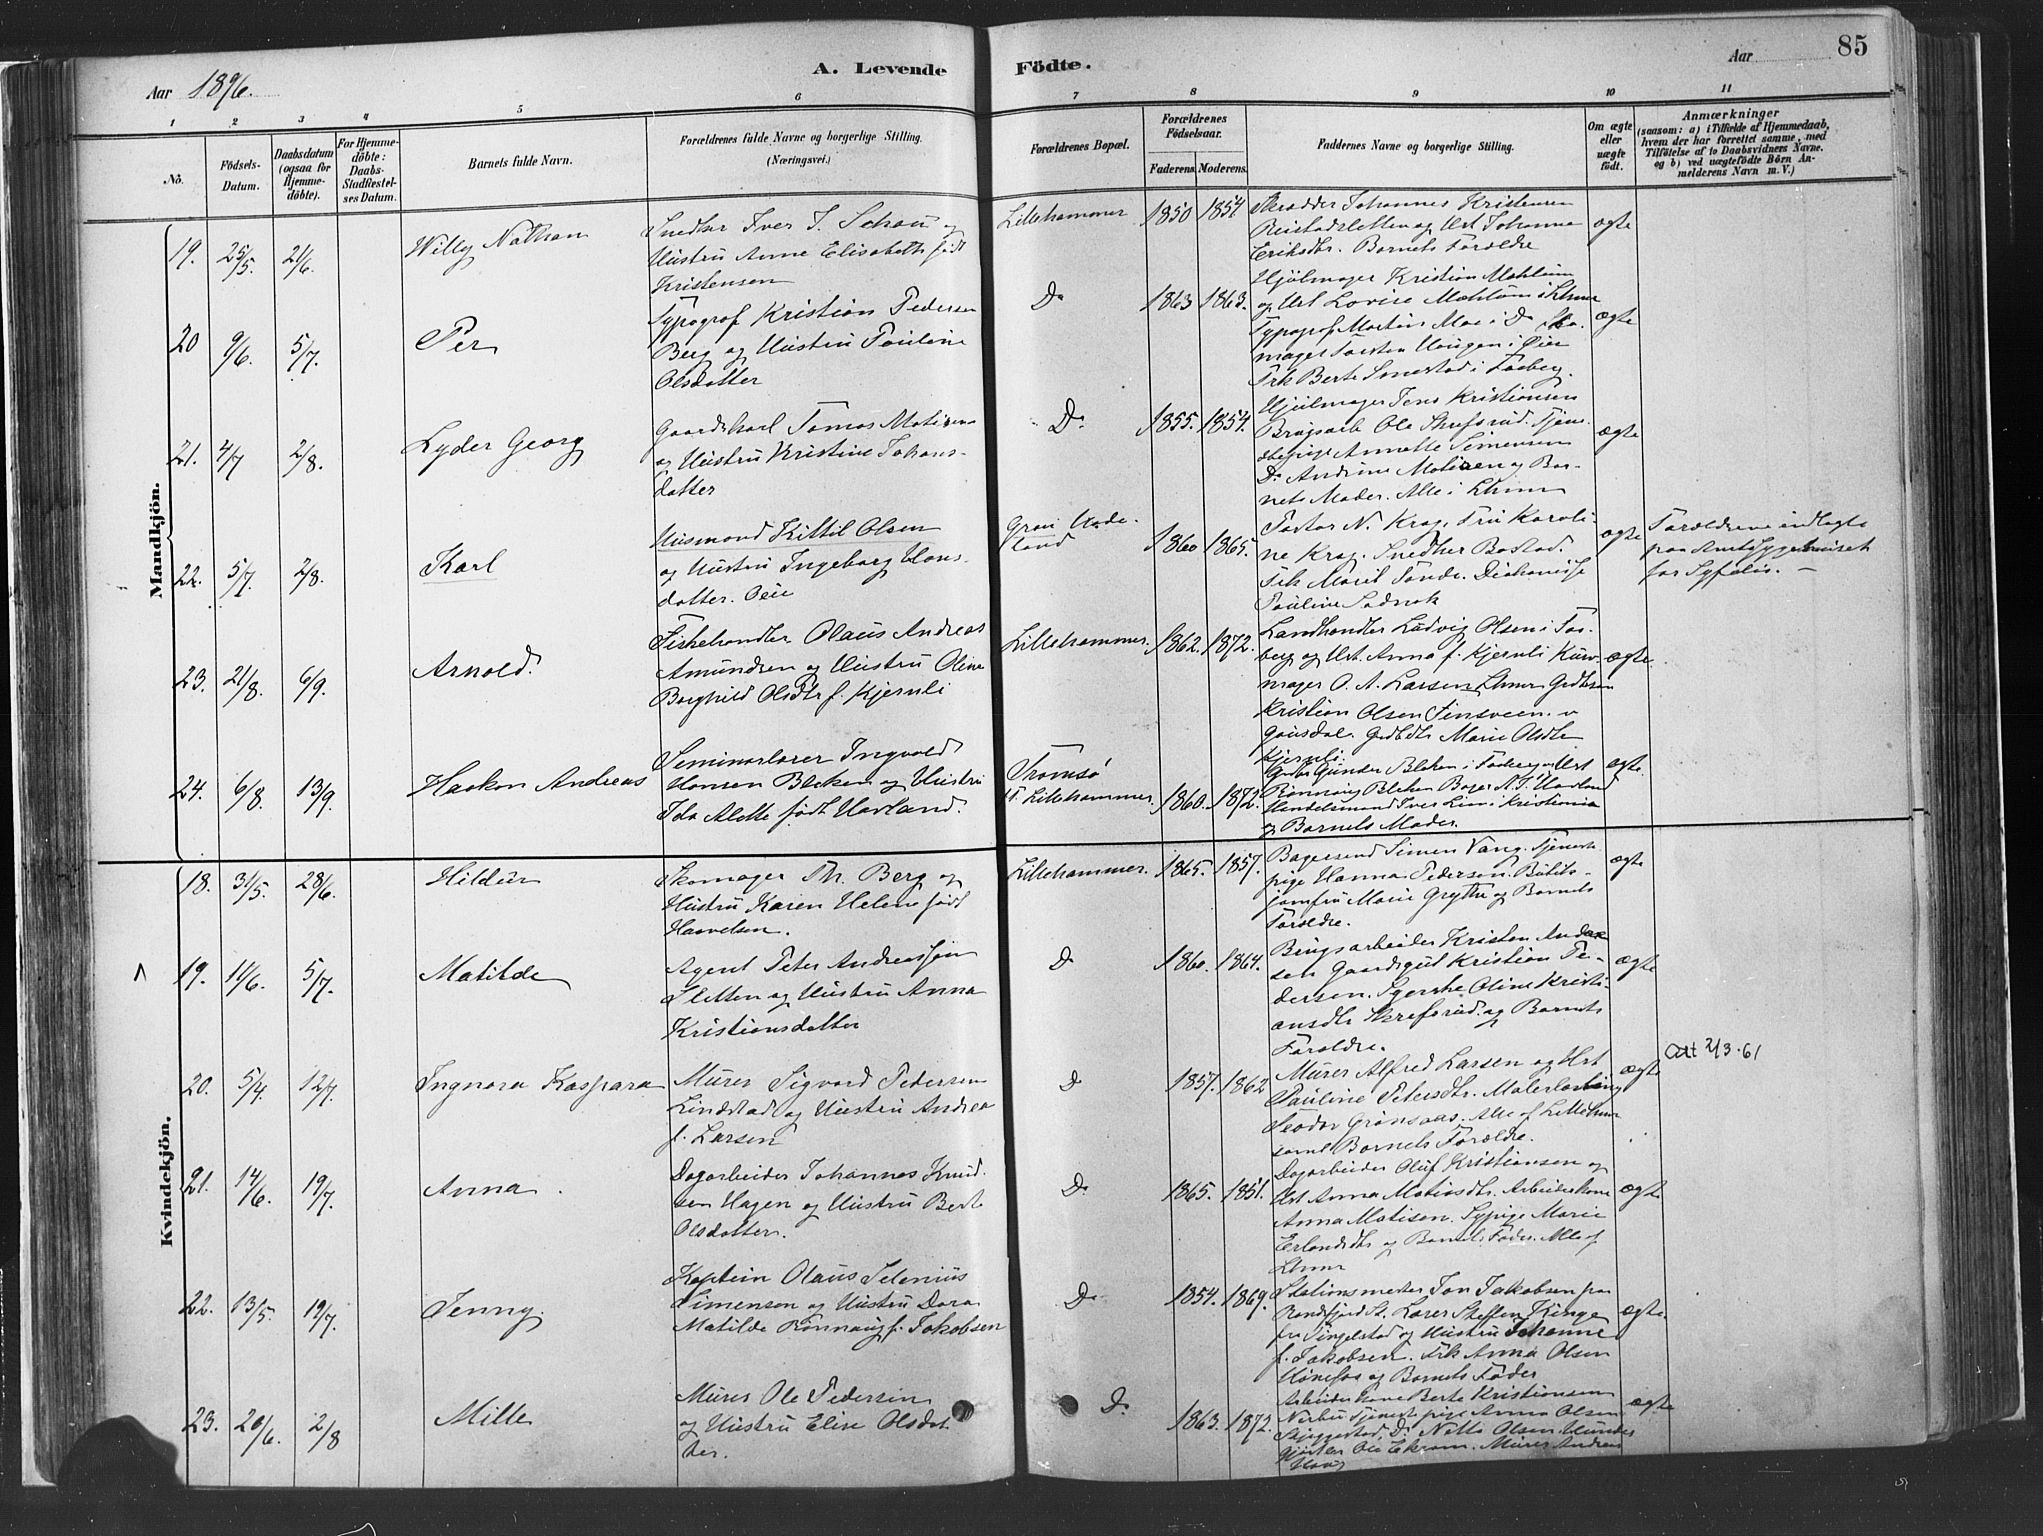 Aar 1896.
A. Levende Födte.
Aar 85
1 2 3 4 5 6 7 8 9 10 11
No.
Födsels-
Datum.
Daabsdatum
(ogsaa for
Hjemme-
döbte).
For Hjemme-
döbte:
Daabs-
Stadfæstel-
ses Datum.
Barnets fulde Navn.
Forældrenes fulde Navne og borgerlige Stilling.
(Næringsvei.)
Forældrenes Bopæl.
Forældrenes
Födselsaar.
Faderens. Moderens.
Faddernes Navne og borgerlige Stilling.
Om ægte
eller
uægte
födt.
Anmærkninger
(saasom: a) i Tilfælde af Hjemmedaab,
hvem der har forrettet samme, med
Tilföielse af to Daabsvidners Navne.
og b) ved uægtefödte Börn An-
melderens Navn m. V.)
Mandkjön.
19. 25/5. 21/6. Willy Nathan
Snedker Iver J. Schou og
Hustru Anne Elisabeth født
Kristensen
Lillehammer 1850 1854
Skrædder Johannes Kristensen
Reistadsletten og Hst Johanne
Eriksdtr. Barnets Forældre
ægte
20 9/6. 5/7. Per
Typograf Kristian Pedersen
Berg og Hustru Pauline
Olsdatter
Do 1863 1863.
Hjulmager Kristian Mæhlum
og Hst Lovise Mæhlum i Lhmr
Typograf Martin Moe i Do Sko-
mager Torsten Haugen i Øier
Frk Berte Smestad i Faaberg.
ægte
21. 4/7 2/8. Lyder Georg
Gaardskarl Tomas Matisen
og Hustru Kristine Johans-
datter
Do 1855. 1854.
Hjulmager Jens Kristiansen
Brugsarb Ole Skrefsrud. Tjene-
stepige Annette Simensen
Do Andrine Matisen og Bar-
nets Moder. Alle i Lhmr
ægte
22. 5/7. 2/8. Karl
Husmand Kittil Olsen
og Hustru Ingeborg Hans-
datter. Øeie
Gran Hade-
land
1860 1865.
Pastor N. Krag. Fru Karoli-
ne Krag. Snedker Bostad.
Frk Marit Sande. Diakonisse
Pauline
ægte
Forældrene indlagte
paa Amtssygehuset
for Syfilis. —
23. 21/8. 6/9. Arnold.
Fiskehandler Olaus Andreas
Amundsen og Hustru Oline
Borghild Olsdtr f. Kjernli
Lillehammer. 1862. 1872.
Landhandler Ludvig Olsen i Faa-
berg og Hst. Anna f. Kjernli Kurv-
mager O. A. Larsen Lhmr Gdbsøn
Kristian Olsen Finsveen. v
Gausdal. Gdbdtr Marie Olsdtr
Kjernli.
ægte.
24. 6/8. 13/9. Haakon Andreas
Seminarlærer Ingvald
Hansen Bleken og Hustru
Ida Alette født Havland.
Tromsø
Lillehammer. 1860. 1872.
Gdbr Gunder Bleken i Faaberg og Hst
Rønnaug Bleken Bager A. J. Havland
Handelsmand Iver Lien i Kristiania
og Barnets Moder.
ægte.
Kvindekjön.
18. 31/5. 28/6. Hildur
Skomager Th. Berg og
Hustru Karen Helene født
Haavelsen.
Lillehammer. 1865. 1857.
Bagersvend Simen Vang. Tjeneste
pige Hanna Pedersen. Butiks-
jomfru Marie Grytte og Barnets
Forældre.
ægte
19. 11/6. 5/7. Matilde
Agent Peter Andreassen
Sletten og Hustru Anna
Kristiansdatter
Do 1860. 1864.
Brugsarbeider Kristen Ander-
sen Gaardsgut Kristian Pe-
dersen. Syerske Oline Kristi-
ansdtr Skrefsrud. og Barnets
Forældre.
ægte
20. 5/4. 12/7. Ingvara Kaspara
Murer Sigvard Pedersen
Lindstad og Hustru Andrea
f. Larsen
Do 1857. 1862
Murer Alfred Larsen og Hst
Pauline Petersdtr. Malerlærling
Teodor Grønaas. Alle af Lillehmr
samt Barnets Forældre.
ægte
Att 2/3-61
21. 14/6. 19/7. Anna.
Dagarbeider Johannes Knud-
sen Hagen og Hustru Berte
Olsdatter.
Do 1865. 1851.
Dagarbeider Oluf Kristiansen og
Hst Anna Matiasdtr. Arbeiderkone
Anna Matisen. Sypige Marie
Erlandsdtr og Barnets Fader. Alle af
Lhmr
ægte
22. 13/5. 19/7. Jenny.
Kaptein Olaus Selenius
Simensen og Hustru Dora
Matilde Rønnaug f. Jakobsen
Do 1854. 1869.
Stationsmester Jon Jakobsen paa
Randsfjord St. Lærer Steffen Kinge
fra Tingelstad og Hustru Johanne
f. Jakobsen. Frk Anna Olsen
Hønefos og Barnets Fader
ægte.
23. 20/6. 2/8 Mille
Murer Ole Pedersen
og Hustru Elise Olsdat
ter.
Do 1863. 1872.
Arbeiderkone Berte Kristiansen
Nerbu Tjenestepige Anna Olsen
Skjeggestad, Do Netta Olsen Hunder
Ole Ekrom. Murer Andreas
Haug
ægte